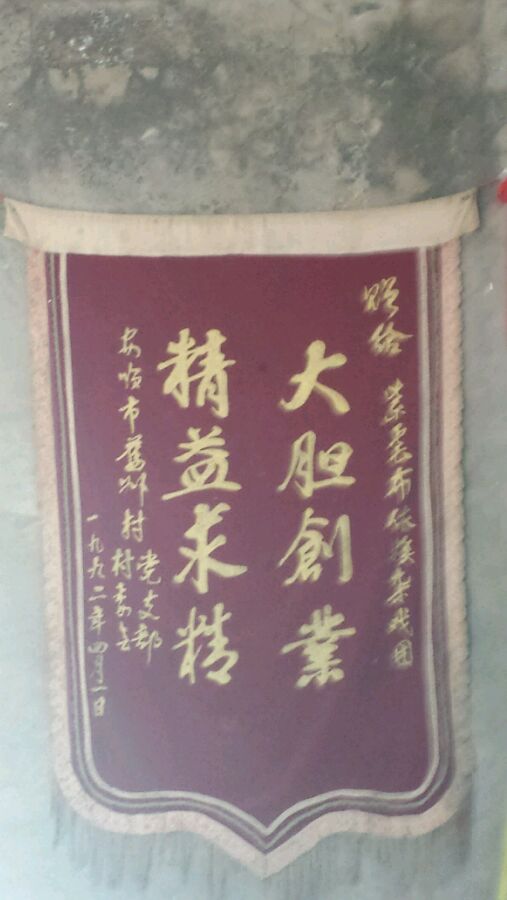 赠给 布依族戏团
大胆創業
精益求精
安顺市舊州村
党支部
村委会
一九九二年四月一日